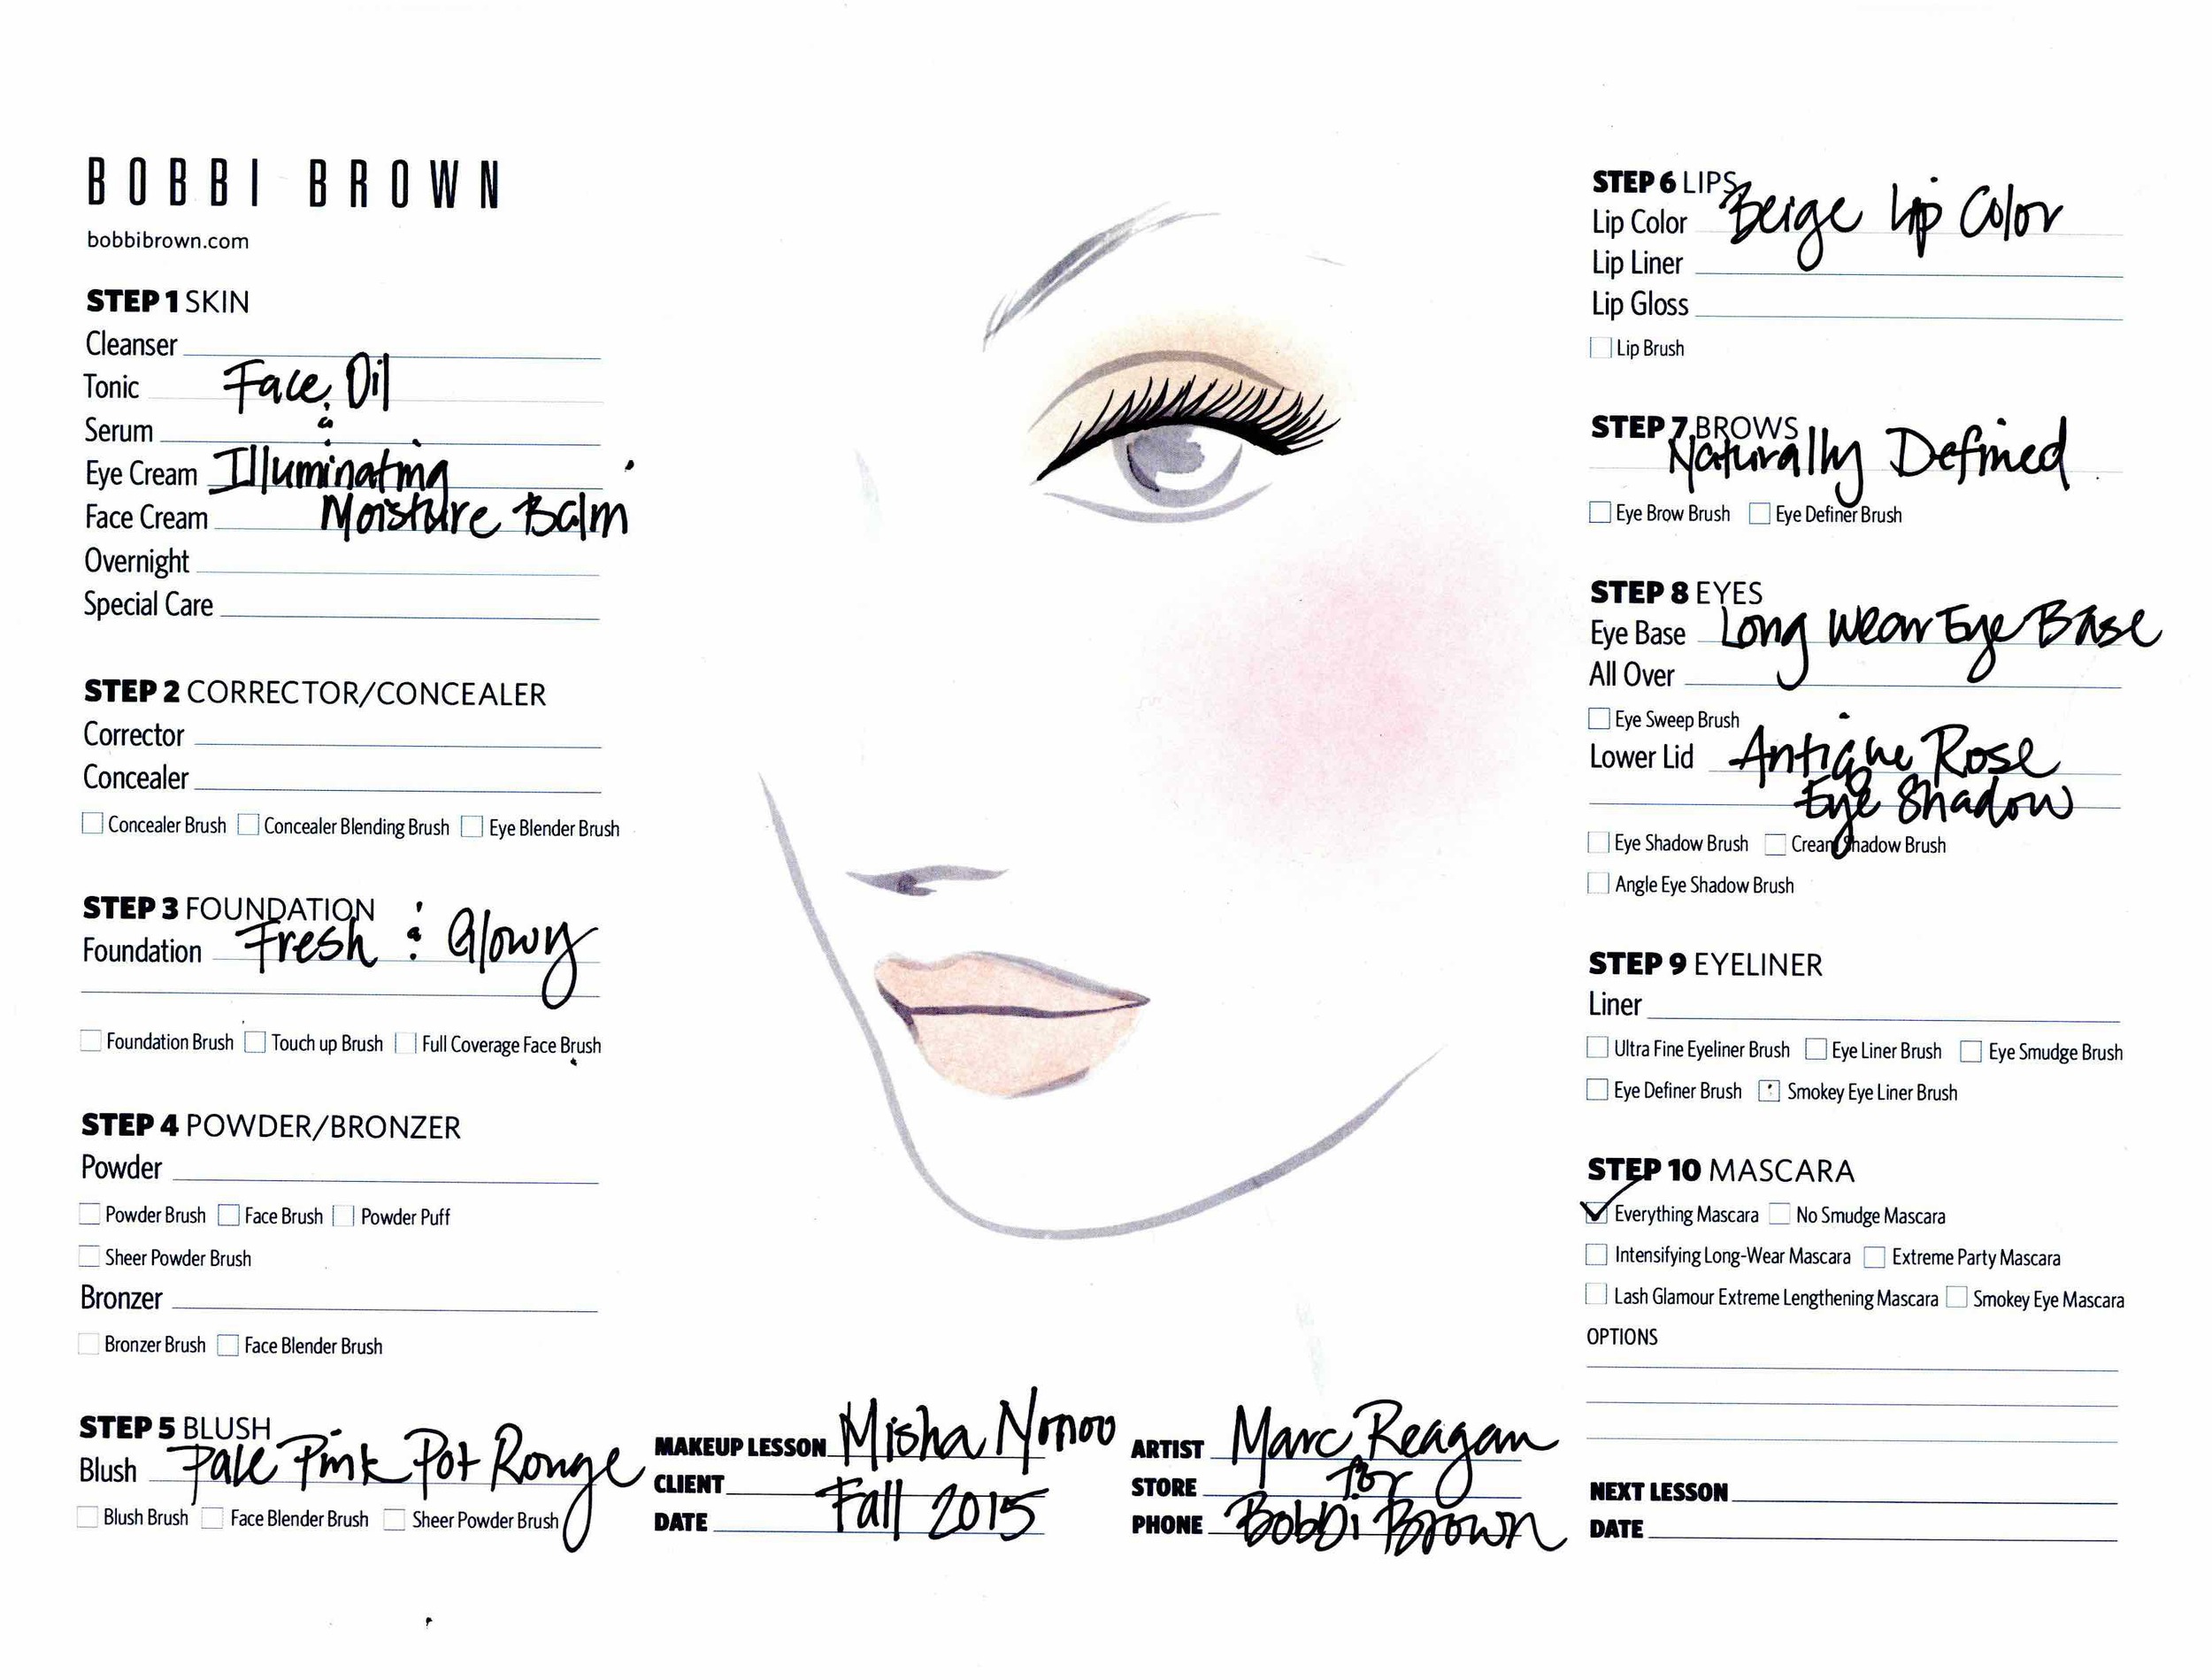 BOBBI BROWN
bobbibrown.com
STEP 1 SKIN
Cleanser
Tonic Face Oil
Serum &
Eye Cream Illuminating
Face Cream Moisture Balm
Overnight
Special Care
STEP 2 CORRECTOR/CONCEALER
Corrector
Concealer
Concealer Brush Concealer Blending Brush Eye Blender Brush
STEP 3 FOUNDATION
Foundation Fresh & Glowy
Foundation Brush Touch up Brush Full Coverage Face Brush
STEP 4 POWDER/BRONZER
Powder
Powder Brush Face Brush Powder Puff
Sheer Powder Brush
Bronzer
Bronzer Brush Face Blender Brush
STEP 5 BLUSH
Blush Pale Pink Pot Rouge
Blush Brush Face Blender Brush Sheer Powder Brush
MAKEUP LESSON Misha Nonoo
CLIENT
DATE Fall 2015
ARTIST Marc Reagan
STORE for
PHONE Bobbi Brown
STEP 6 LIPS
Lip Color Beige Lip Color
Lip Liner
Lip Gloss
Lip Brush
STEP 7 BROWS
Naturally Defined
Eye Brow Brush Eye Definer Brush
STEP 8 EYES
Eye Base Long Wear Eye Base
All Over
Eye Sweep Brush
Lower Lid Antique Rose
Eye Shadow
Eye Shadow Brush Cream Shadow Brush
Angle Eye Shadow Brush
STEP 9 EYELINER
Liner
Ultra Fine Eyeliner Brush Eye Liner Brush Eye Smudge Brush
Eye Definer Brush Smokey Eye Liner Brush
STEP 10 MASCARA
Everything Mascara No Smudge Mascara
Intensifying Long-Wear Mascara Extreme Party Mascara
Lash Glamour Extreme Lengthening Mascara Smokey Eye Mascara
OPTIONS
NEXT LESSON
DATE